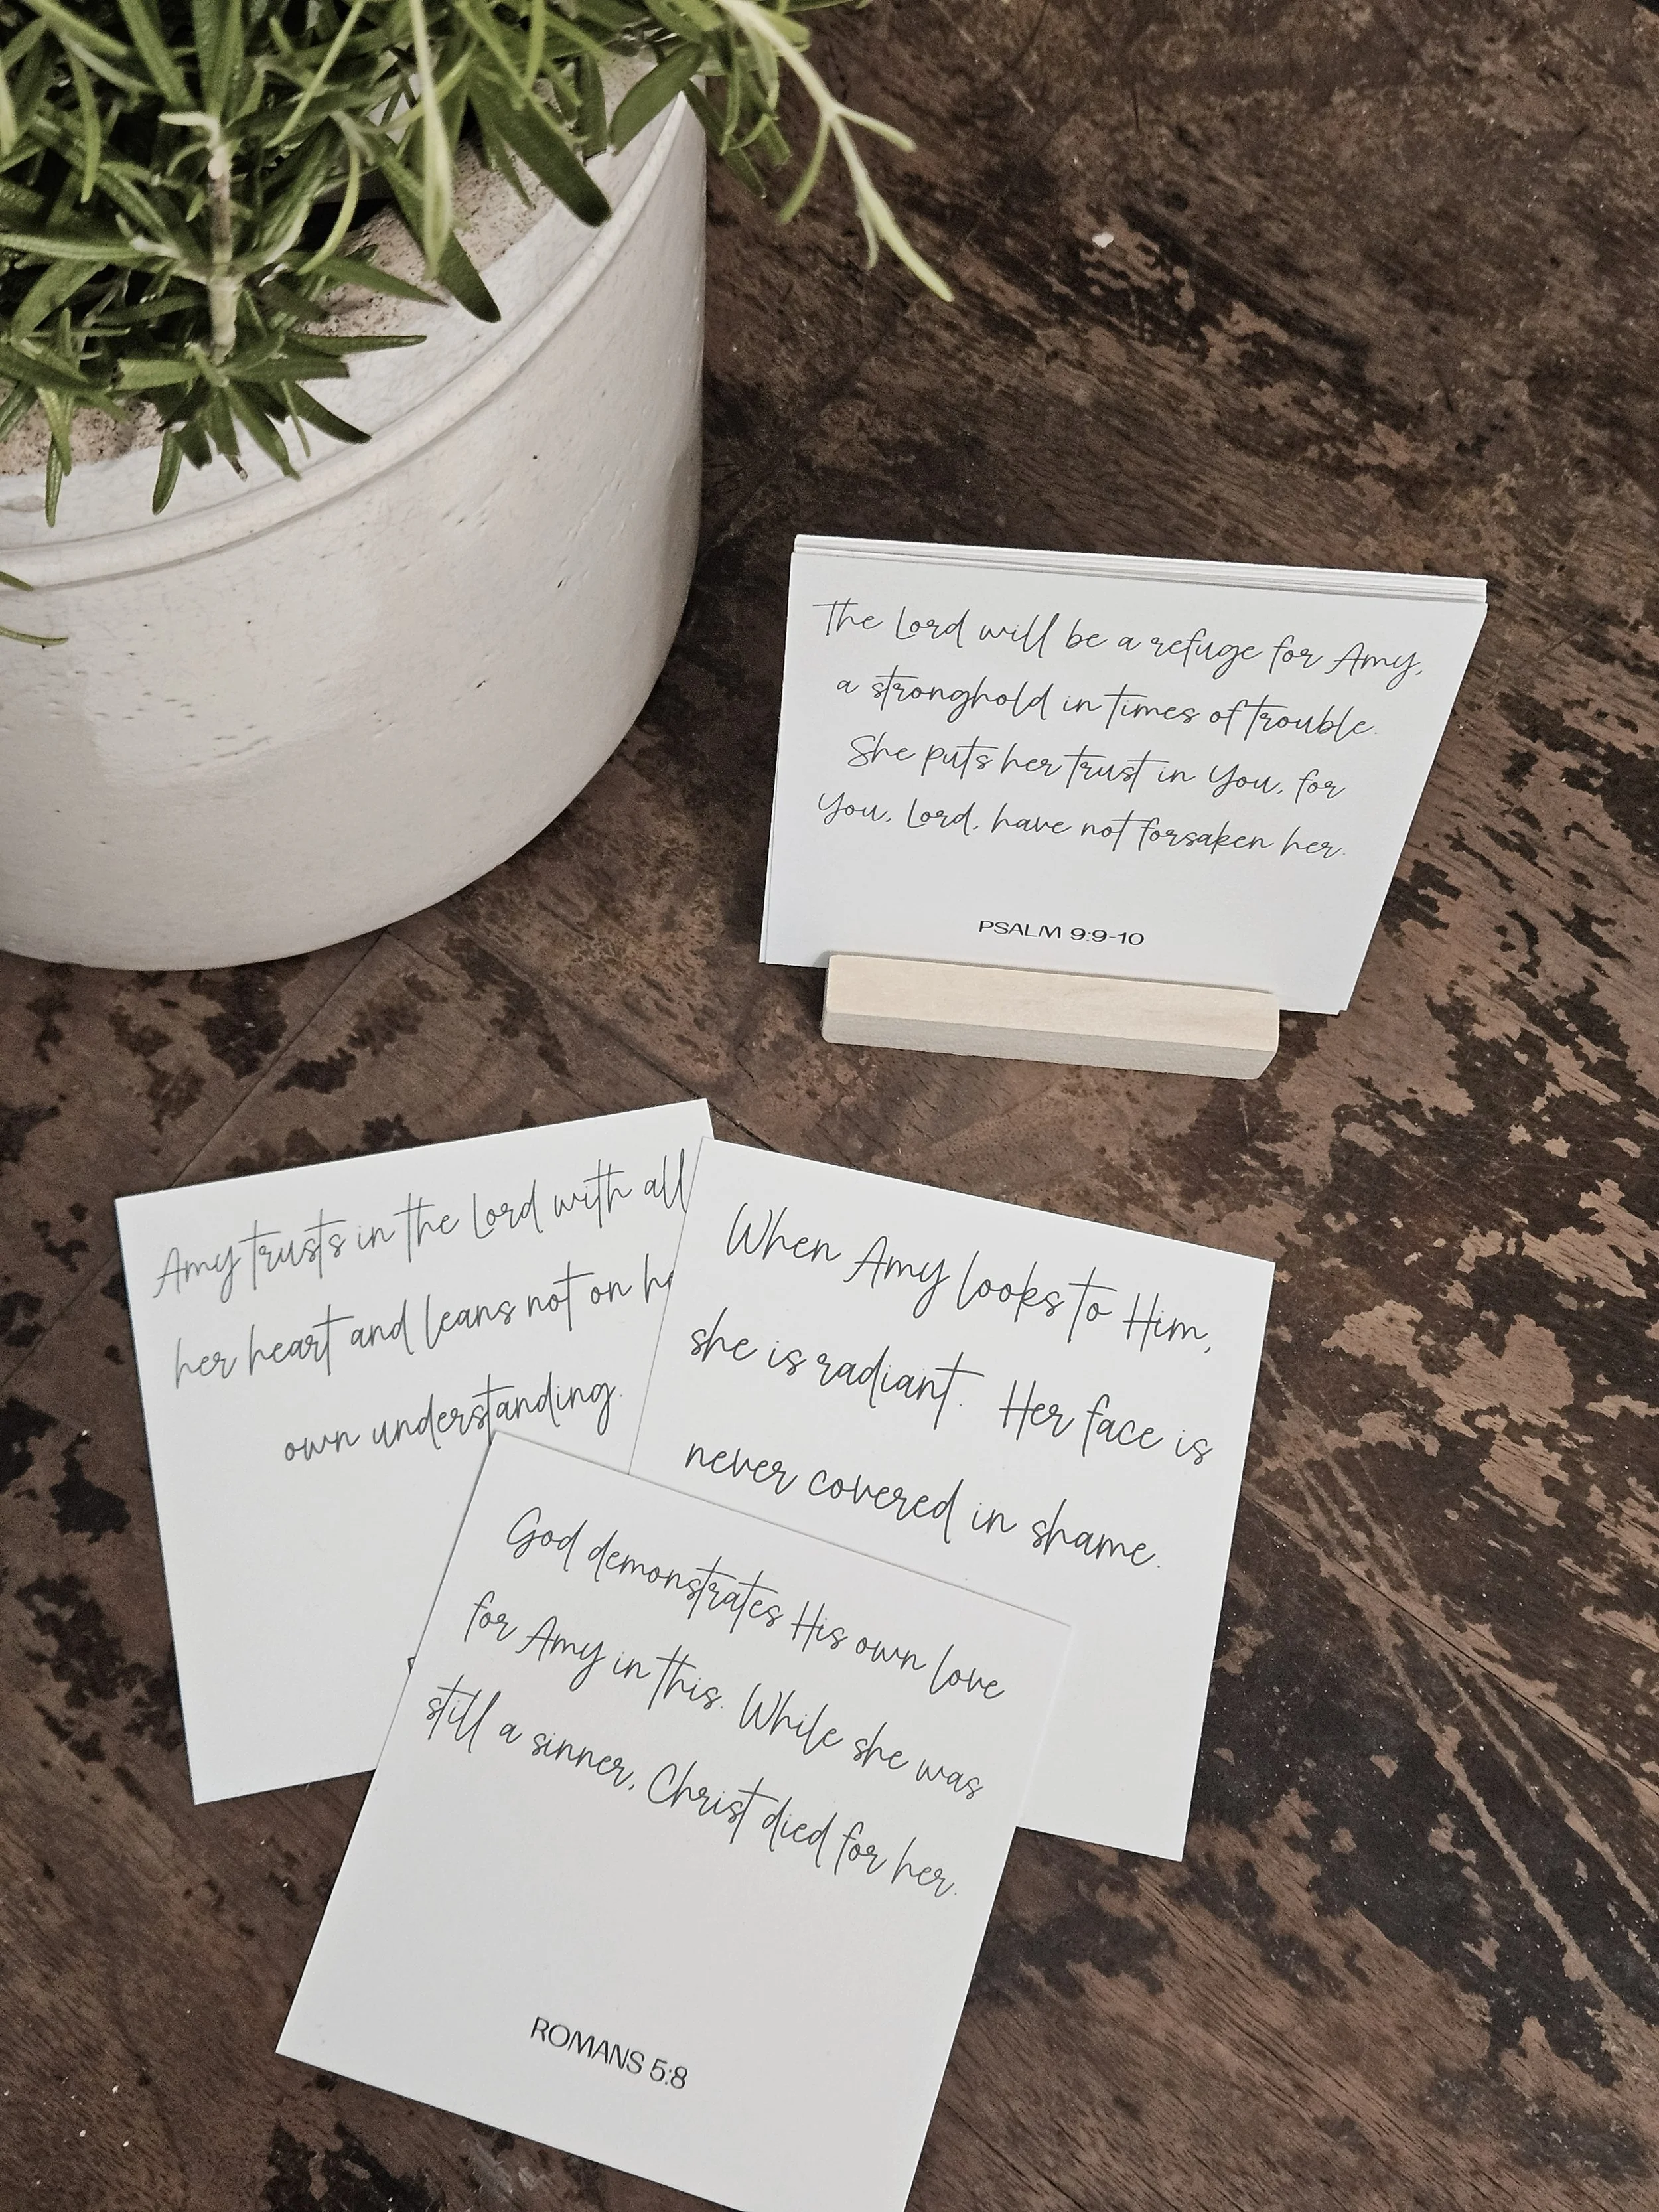 The Lord will be a refuge for Amy,
a stronghold in times of trouble.
She puts her trust in You, for
You, Lord, have not forsaken her.
PSALM 9:9-10
Amy trusts in the Lord with all
her heart and leans not on
own understanding.
When Amy looks to Him,
she is radiant. Her face is
never covered in shame.
God demonstrates His own love
for Amy in this. While she was
still a sinner, Christ died for her.
ROMANS 5:8